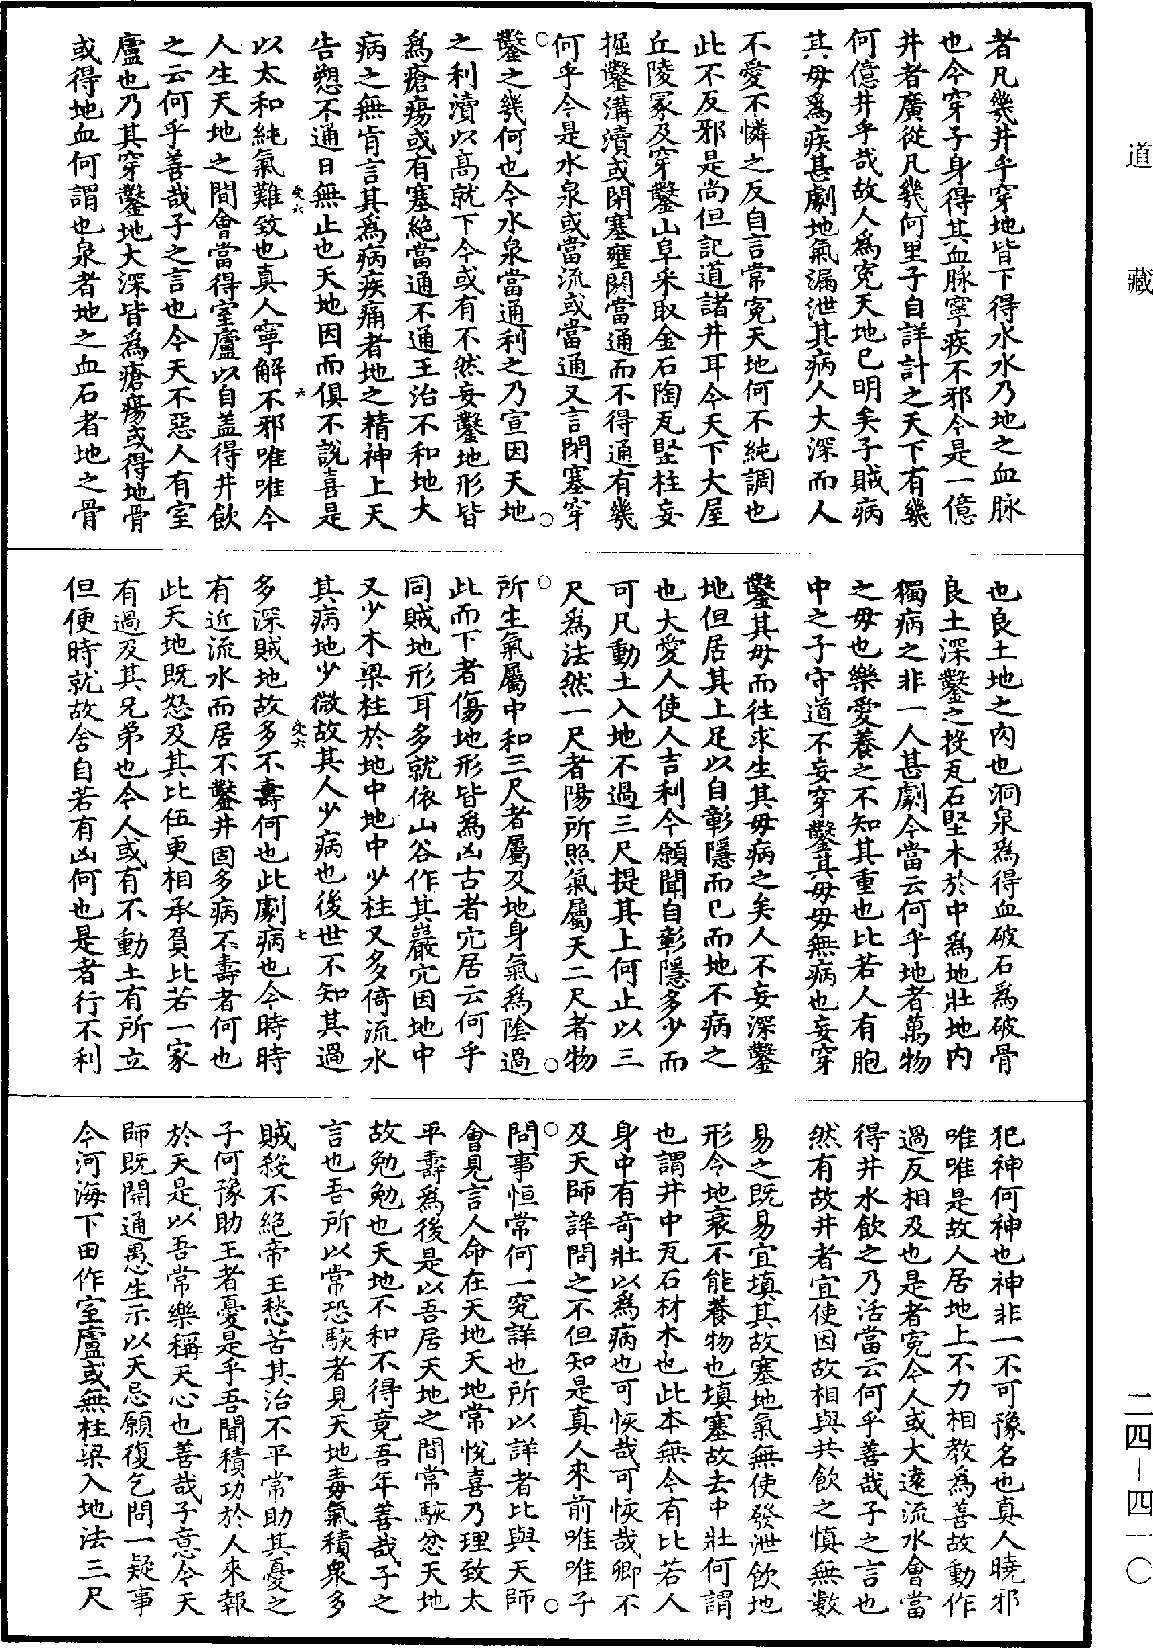 道藏
者凡幾井乎穿地皆下得水水乃地之血脉
也今穿子身得其血脉寧疾不邪今是一億
井者廣從凡幾何里子自詳計之天下有幾
何億井乎哉故人爲冤天地已明矣子賊病
其母爲疾甚劇地氣漏泄其病人大深而人
不愛不憐之反自言常冤天地何不純調也
此不反邪是尚但記道諸井耳今天下大屋
丘陵冢及穿鑿山阜采取金石陶瓦竪柱妄
掘鑿溝瀆或閉塞壅閼當通而不得通有幾
何乎今是水泉或當流或當通又言閉塞穿
鑿之幾何也今水泉當通利之乃宣因天地
之利瀆以高就下今或有不然妄鑿地形皆
爲瘡瘍或有塞絕當通不通王治不和地大
病之無肯言其爲病疾痛者地之精神上天
告愬不通日無止也天地因而俱不說喜是
以太和純氣難致也真人寧解不邪唯唯今
人生天地之間會當得室廬以自盖得井飲
之云何乎善哉子之言也今天不惡人有室
廬也乃其穿鑿地大深皆爲瘡瘍或得地骨
或得地血何謂也泉者地之血石者地之骨
也良土地之肉也洞泉爲得血破石爲破骨
良土深鑿之投瓦石堅木於中爲地壯地內
獨病之非一人甚劇今當云何乎地者萬物
之母也樂愛養之不知其重也比若人有胞
中之子守道不妄穿鑿其母母無病也妄穿
鑿其母而往求生其母病之矣人不妄深鑿
地但居其上足以自彰隱而已而地不病之
也大愛人使人吉利今願聞自彰隱多少而
可凡動土入地不過三尺提其上何止以三
尺爲法然一尺者陽所照氣屬天二尺者物
所生氣屬中和三尺者屬及地身氣爲陰過
此而下者傷地形皆爲凶古者穴居云何乎
同賊地形耳多就依山谷作其巖穴因地中
又少木梁柱於地中地中少柱又多倚流水
其病地少微故其人少病也後世不知其過
多深賊地故多不壽何也此劇病也今時時
有近流水而居不鑿井固多病不壽者何也
此天地既怒及其比伍更相承負比若一家
有過及其兄弟也今人或有不動土有所立
但便時就故舍自若有凶何也是者行不利
犯神何神也神非一不可豫名也真人曉邪
唯唯是故人居地上不力相教為善故動作
過反相及也是者冤今人或大遠流水會當
得井水飲之乃活當云何乎善哉子之言也
然有故井者宜使因故相與共飲之慎無數
易之既易宜填其故塞地氣無使發泄飲地
形令地衰不能養物也填塞故去中壯何謂
也謂井中瓦石材木也此本無今有比若人
身中有奇壯以爲病也可恢哉可恢哉卿不
及天師詳問之不但知是真人來前唯唯子
問事恒常何一究詳也所以詳者比與天師
會見言人命在天地天地常悅喜乃理致太
平壽爲後是以吾居天地之間常駭忿天地
故勉勉也天地不和不得竟吾年善哉子之
言也吾所以常恐駭者見天地毒氣積衆多
賊殺不絕帝王愁苦其治不平常助其憂之
子何豫助王者憂是乎吾聞積功於人來報
於天是以吾常樂稱天心也善哉子意今天
師既開通愚生示以天忌願復乞問一疑事
今河海下田作室廬或無柱梁入地法三尺
二四-四一〇